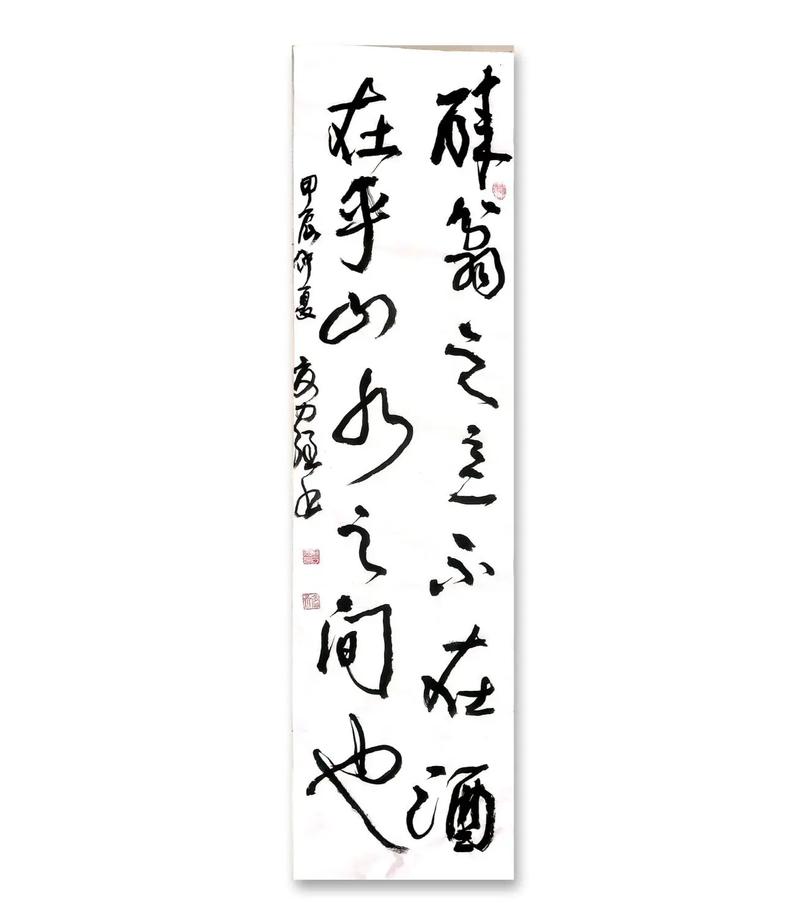 醉翁之意不在酒
在乎山水之间也
甲辰仲夏